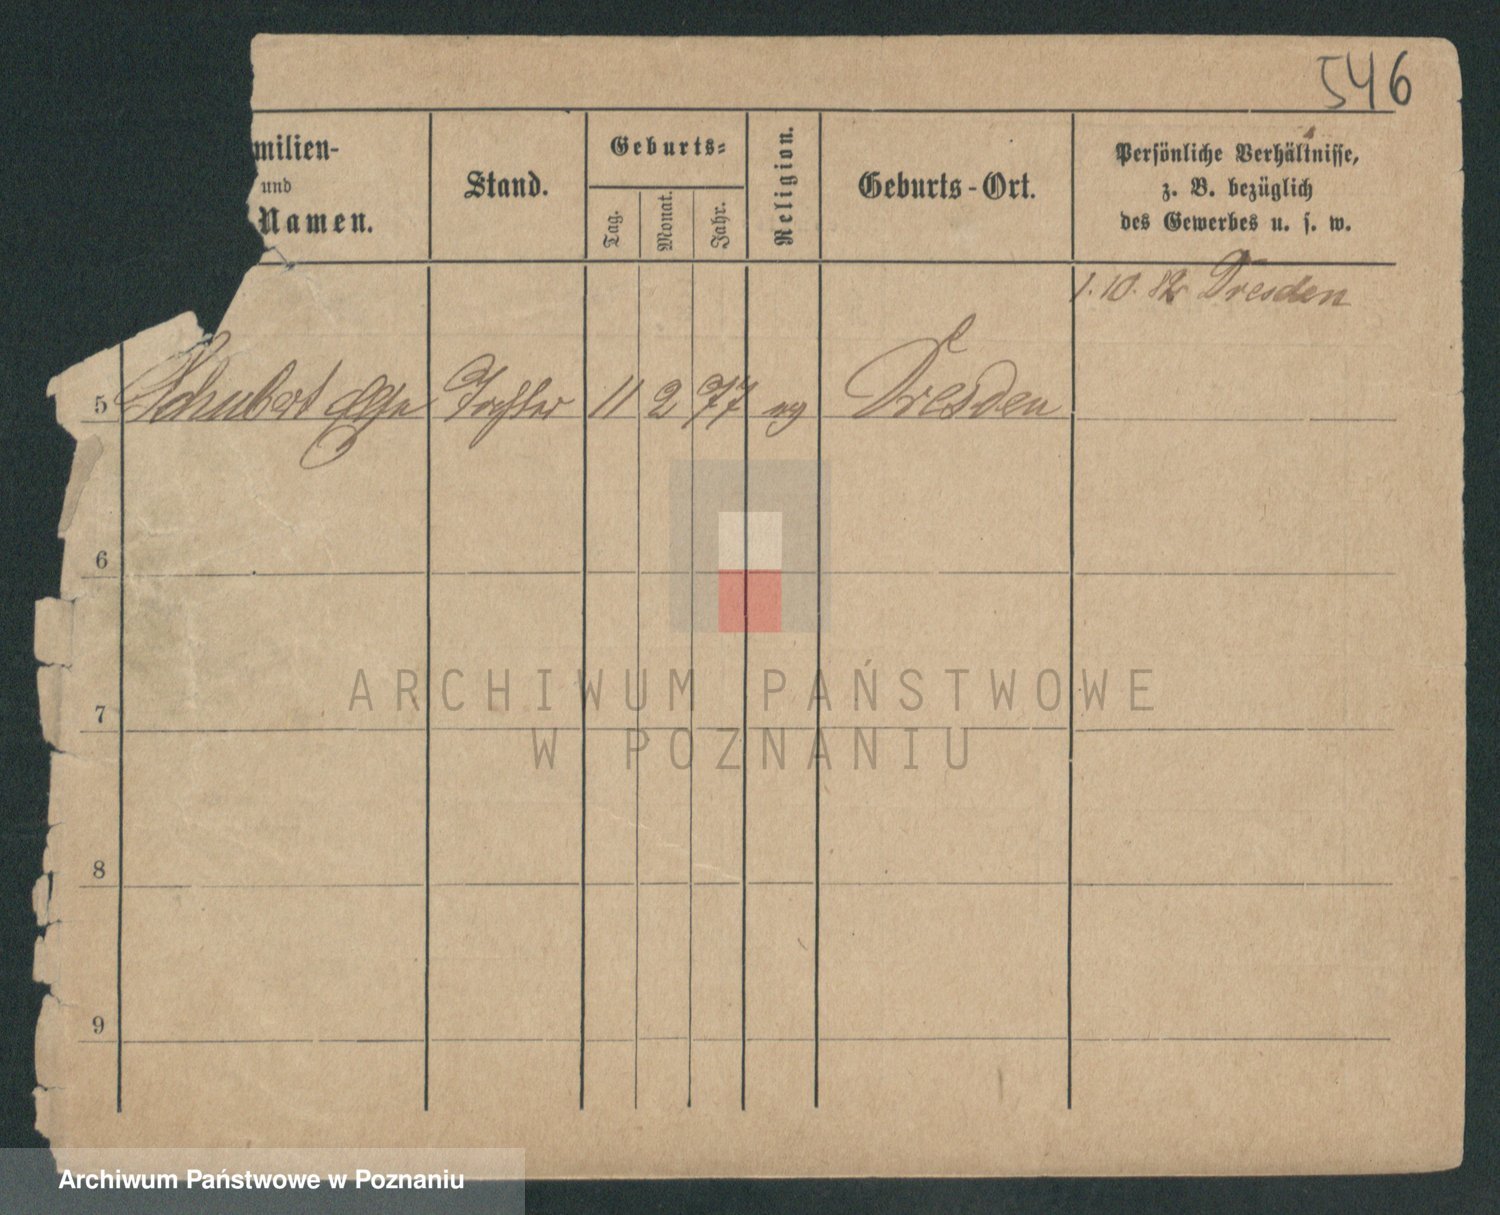 546
milien-
und
Namen.
Stand.
Geburts=
Tag.
Monat.
Jahr.
Religion.
Geburts-Ort.
Persönliche Verhältnisse,
z. B. bezüglich
des Gewerbes u. s. w.
1. 10. 82 Dresden
5 Schubert Tochter 11 2 77 Dresden
6
7
8
9
ARCHIWUM PAŃSTWOWE
W POZNANIU
Archiwum Państwowe w Poznaniu